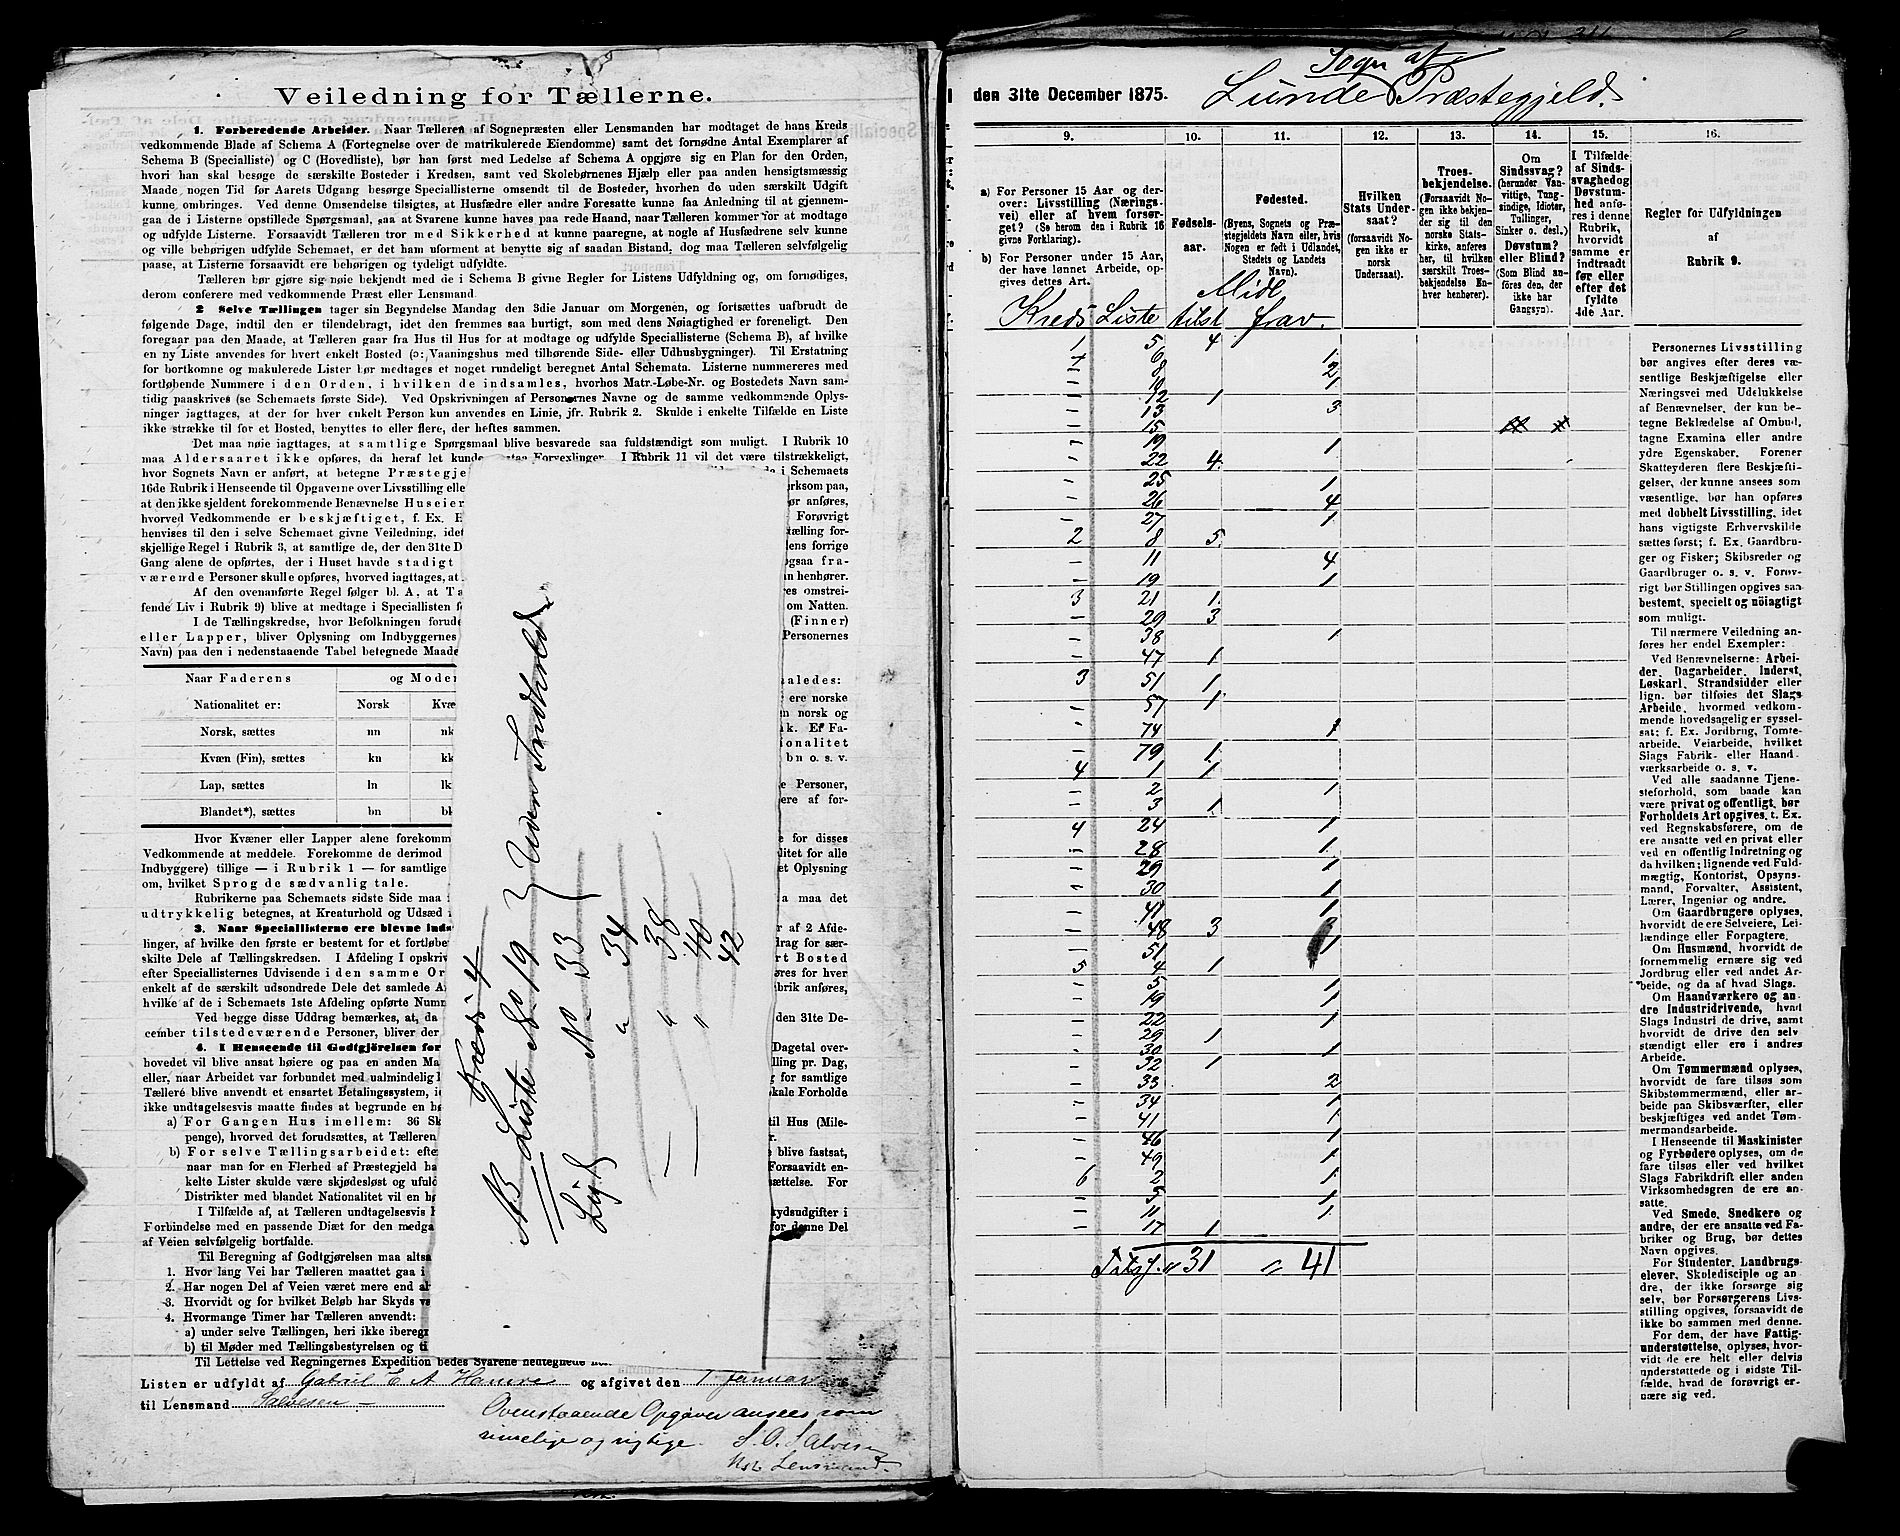 Veiledning for Tællerne.
1. Forberedende Arbeider. Naar Tælleren af Sognepræsten eller Lensmanden har modtaget de hans Kreds
vedkommende Blade af Schema A (Fortegnelse over de matrikulerede Eiendomme) samt det fornødne Antal Exemplarer af
Schema B (Specialliste) og C (Hovedliste), bør han først med Ledelse af Schema A opgjøre sig en Plan for den Orden,
hvori han skal besøge de særskilte Bosteder i Kredsen, samt ved Skolebørnenes Hjælp eller paa anden hensigtsmæssig
Maade nogen Tid før Aarets Udgang besørge Speciallisterne omsendt til de Bosteder, hvorhen de uden særskilt Udgift
kunne ombringes. Ved denne Omsendelse tilsigtes, at Husfædre eller andre Foresatte kunne faa Anledning til at gjennem-
gaa de i Listerne opstillede Spørgsmaal, saa at Svarene kunne haves paa rede Haand, naar Tælleren kommer for at modtage
og udfylde Listerne. Forsaavidt Tælleren tror med Sikkerhed at kunne paaregne, at nogle af Husfædrene selv kunne
og ville behørigen udfylde Schemaet, er det ham uforment at benytte sig af saadan Bistand, dog maa Tælleren selvfølgelig
paase, at Listerne forsaavidt ere behørigen og tydeligt udfyldte.
Tælleren bør gjøre sig nøie bekjendt med de i Schema B givne Regler for Listens Udfyldning og, om fornødiges,
derom conferere med vedkommende Præst eller Lensmand.
2 Selve Tællingen tager sin Begyndelse Mandag den 3die Januar om Morgenen, og fortsættes uafbrudt de
følgende Dage, indtil den er tilendebragt, idet den fremmes saa hurtigt, som med dens Nøiagtighed er foreneligt. Den
foregaar paa den Maade, at Tælleren gaar fra Hus til Hus for at modtage og udfylde Speciallisterne (Schema B), af hvilke
en ny Liste anvendes for hvert enkelt Bosted (ɔ: Vaaningshus med tilhørende Side- eller Udhusbygninger). Til Erstatning
for bortkomne og makulerede Lister bør medtages et noget rundeligt beregnet Antal Schemata. Listerne nummereres med
fortløbende Nummere i den Orden, i hvilken de indsamles, hvorhos Matr.-Løbe-Nr. og Bostedets Navn sam-
tidig paaskrives (se Schemaets første Side). Ved Opskrivningen af Personernes Navne og de samme vedkommende Oplys-
ninger iagttages, at der for hver enkelt Person kun anvendes en Linie, jfr. Rubrik 2. Skulde i enkelte Tilfælde en Liste
ikke strække til for et Bosted, benyttes to eller flere, der heftes sammen.
Det maa nøie iagttages, at samtlige Spørgsmaal blive besvarede saa fuldstændigt som muligt. I Rubrik 10
maa Aldersaaret ikke opføres, da heraf let kunde
I Rubrik 11 vil det være tilstrækkeligt,
hvor Sognets Navn er anført, at betegne Præstegje
i Schemaets
16de Rubrik i Henseende til Opgaverne over Livsstilling elle
rksom paa,
at den ikke sjeldent forekommende Benævnelse Huseier
ør anføres,
hvorved Vedkommende er beskjæftiget, f. Ex. E
Forøvrigt
henvises til den i selve Schemaet givne Veiledning, idet
tælling for-
skjellige Regel i Rubrik 3, at samtlige de, der den 31te D
dens forrige
Gang alene de opførtes, der i Huset havde stadigt
ogsaa fra-
værende Personer skulle opføres, hvorved iagttages, at
an henhører.
Af den ovenanførte Regel følger bl. A., at T
res omstrei-
fende Liv i Rubrik 9) blive at medtage i Speciallisten f
om Natten.
I de Tællingskredse, hvor Befolkningen forud
(Finner)
eller Lapper, bliver Oplysning om Indbyggernes
Personernes
Navn) paa den i nedenstaaende Tabel betegnede Maade
Naar Faderens og Moder
Nationalitet er: Norsk Kvæ
Norsk, sættes nn nk
Kvæn (Fin), sættes kn kk
Lap, sættes ln lk
Blandet*), sættes bn bk
aledes:
ere norske
n norsk og
sk. Er Fa-
ionalitet
bn o. s. v.
e Personer,
ere af for-
Hvor Kvæner eller Lapper alene forekomm
e for disses
Vedkommende at meddele. Forekomme de derimod
litet for alle
Indbyggere) tillige — i Rubrik 1 — for samtlige
et Oplysning
om, hvilket Sprog de sædvanlig tale.
Rubrikerne paa Schemaets sidste Side maa f
a maa det
udtrykkelig betegnes, at Kreaturhold og Udsæd i
3. Naar Speciallisterne ere blevne inds
r af 2 Afde-
linger, af hvilke den første er bestemt for et fortløbe
drag for sær-
skilte Dele af Tællingskredsen. I Afdeling I opskriv
rt Bosted
efter Speciallisternes Udvisende i den samme Or
øres for hver
enkelt af de særskilt udsondrede Dele det samlede A
brik anføres,
hvilke af de i Schemaets 1ste Afdeling opførte Numm
Ved begge disse Uddrag bemærkes, at, da
den 31te De-
cember tilstedeværende Personer, bliver der
4. I Henseende til Godtgjörelsen for
Dagetal over-
hovedet vil blive ansat høiere og paa en anden Ma
lling pr. Dag,
eller, naar Arbeidet var forbundet med ualmindelig
g for samtlige
Tællere blive anvendt et ensartet Betalingssystem, i
kale Forholde
ikke undtagelsesvis maatte findes at begrunde en hø
a) For Gangen Hus imellem: 36 Sk
til Hus (Mile-
penge), hvorved det forudsættes, at Tælleren
b) For selve Tællingsarbeidet: efte
blive fastsat,
naar man for en Flerhed af Præstegjeld ha
Forsaavidt en-
kelte Lister skulde være skjødesløst og ufuld
sættelse. For
Distrikter med blandet Nationalitet vil en hø
I Tilfælde af, at Tælleren undtagelsesvis
kydsudgifter i
Forbindelse med en passende Diæt for den medga
for denne Del
af Veien selvfølgelig bortfalde.
Til Beregning af Godtgjørelsen maa altsa
1. Hvor lang Vei har Tælleren maattet gaa i
2. Har nogen Del af Veien været mere end al
3. Hvorvidt og for hvilket Beløb har Skyds v
4. Hvormange Timer har Tælleren anvendt:
a) under selve Tællingen, heri ikke iberegn
b) til Møder med Tællingsbestyrelsen og ti
Til Lettelse ved Regningernes Expedition bedes Svarene
Listen er udfyldt af Gabriel E A og afgivet den 1 Januar
til Lensmand Salvesen —
Ovenstaaende Opgaver ansees som
rimelige og rigtige. S. O. Salvesen
Lensmand.
Kreds 4
NB Liste No 19 Uden Indhold
Lig No 33
" 34
— " 38
— " 40
42
Sogn af
den 31te December 1875. Lunde Præstegjeld.
9. 10. 11. 12. 13. 14. 15. 16.
a) For Personer 15 Aar og der-
over: Livsstilling (Nærings-
vei) eller af hvem forsør-
get? (Se herom den i Rubrik 16
givne Forklaring).
b) For Personer under 15 Aar,
der have lønnet Arbeide, op-
gives dettes Art.
Fødsels-
aar.
Fødested.
(Byens, Sognets og Præ-
stegjeldets Navn eller, hvis
Nogen er født i Udlandet,
Stedets og Landets
Navn).
Hvilken
Stats Under-
saat?
(forsaavidt No-
gen ikke er
norsk
Undersaat).
Troes-
bekjendelse.
(Forsaavidt No-
gen ikke bekjen-
der sig til den
norske Stats-
kirke, anføres
her, til hvilken
særskilt Troes-
bekjendelse En-
hver henhører).
Om
Sindssvag?
(herunder Van-
vittige, Tung-
sindige, Idioter,
Tullinger,
Sinker o. desl.)
Døvstum?
eller Blind?
(Som Blind an-
føres den, der
ikke har
Gangsyn).
I Tilfælde
af Sinds-
svaghed og
Døvstum-
hed anfø-
res i denne
Rubrik,
hvorvidt
samme er
indtraadt
før eller
efter det
fyldte
4de Aar.
Regler for Udfyldningen
af
Rubrik 9.
Midl
Kreds Liste tilst frav.
1 5 4
6 1
8 2
10 1
12 1
13 3
15
19 1
22 4
25 1
26 4
27 1
2 8 5
11 4
19 1
3 21 1
29 3
38 1
47 1
3 51 1
57 1
74 1
79 1
4 1 1
2 1
3 1
4 24 1
28 1
29 1
30 1
41 1
48 3 3
51 1
5 4 1
5 1
19 1
22 1
29 1
30 1
32 1
33 2
34 1
41 1
46 1
49 1
6 2 1
5 1
11 1
17 1
31 " 41
Personernes Livsstilling
bør angives efter deres væ-
sentlige Beskjæftigelse eller
Næringsvei med Udelukkelse
af Benævnelser, der kun be-
tegne Beklædelse af Ombud,
tagne Examina eller andre
ydre Egenskaber. Forener
Skatteyderen flere Beskjæfti-
gelser, der kunne ansees som
væsentlige, bør han opføres
med dobbelt Livsstilling, idet
hans vigtigste Erhvervskilde
sættes først; f. Ex. Gaardbru-
ger og Fisker; Skibsreder og
Gaardbruger o. s. v. Forøv-
rigt bør Stillingen opgives saa
bestemt, specielt og nöiagtigt
som muligt.
Til nærmere Veiledning an-
føres her endel Exempler:
Ved Benævnelserne: Arbei-
der, Dagarbeider, Inderst,
Løskarl, Strandsidder eller
lign. bør tilføies det Slags
Arbeide, hvormed vedkom-
mende hovedsagelig er syssel-
sat; f. Ex. Jordbrug, Tomte-
arbeide, Veiarbeide, hvilket
Slags Fabrik- eller Haand-
værksarbeide o. s. v.
Ved alle saadanne Tjene-
steforhold, som baade kan
være privat og offentligt, bør
Forholdets Art opgives, t. Ex.
ved Regnskabsførere, om de
ere ansatte ved en privat eller
ved en offentlig Indretning og
da hvilken; lignende ved Fuld-
mægtig, Kontorist, Opsyns-
mand, Forvalter, Assistent,
Lærer, Ingeniør og andre.
Om Gaardbrugere oplyses,
hvorvidt de ere Selveiere, Lei-
lændinge eller Forpagtere.
Om Husmænd, hvorvidt de
fornemmelig ernære sig ved
Jordbrug eller ved andet Ar-
beide, og da af hvad Slags.
Om Haandværkere og an-
dre Industridrivende, hvad
Slags Industri de drive, samt
hvorvidt de drive den selv-
stændigt eller ere i andres
Arbeide.
Om Tømmermænd oplyses,
hvorvidt de fare tilsøs som
Skibstømmermænd, eller ar-
beide paa Skibsværfter, eller
beskjæftiges ved andet Tøm-
mermandsarbeide.
I Henseende til Maskinister
og Fyrbødere oplyses, om de
fare tilsøs eller ved hvilket
Slags Fabrikdrift eller anden
Virksomhedsgren de ere an-
satte.
Ved Smede, Snedkere og
andre, der ere ansatte ved Fa-
briker og Brug, bør dettes
Navn opgives.
For Studenter, Landbrugs-
elever, Skoledisciple og an-
dre, der ikke forsørge sig
selv, bør Forsørgerens Livs-
stilling opgives, forsaavidt de
ikke bo sammen med denne.
For dem, der have Fattig-
understøttelse, oplyses, hvor-
vidt de ere helt eller delvis
understøttede og i sidste Til-
fælde, hvad de forøvrigt er-
nære sig ved.